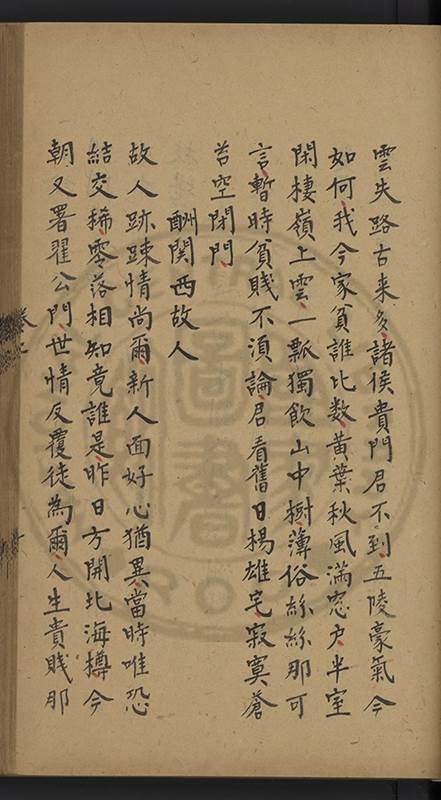 雲失路古来多諸侯貴門君不到五陵豪氣今
如何我今家貧誰比数黄葉秋風滿窓户半室
閑棲嶺上雲一瓢獨飲山中樹薄俗絲絲那可
言暫時貧賤不湏論君看舊日楊雄宅寂寞蒼
苔空閉門
酬関西故人
故人跡踈情尚爾新人面好心猶異當時唯恐
結交稀零落相知竟誰是昨日方開北海樽今
朝又署翟公門世情反覆徒為爾人生貴賤那